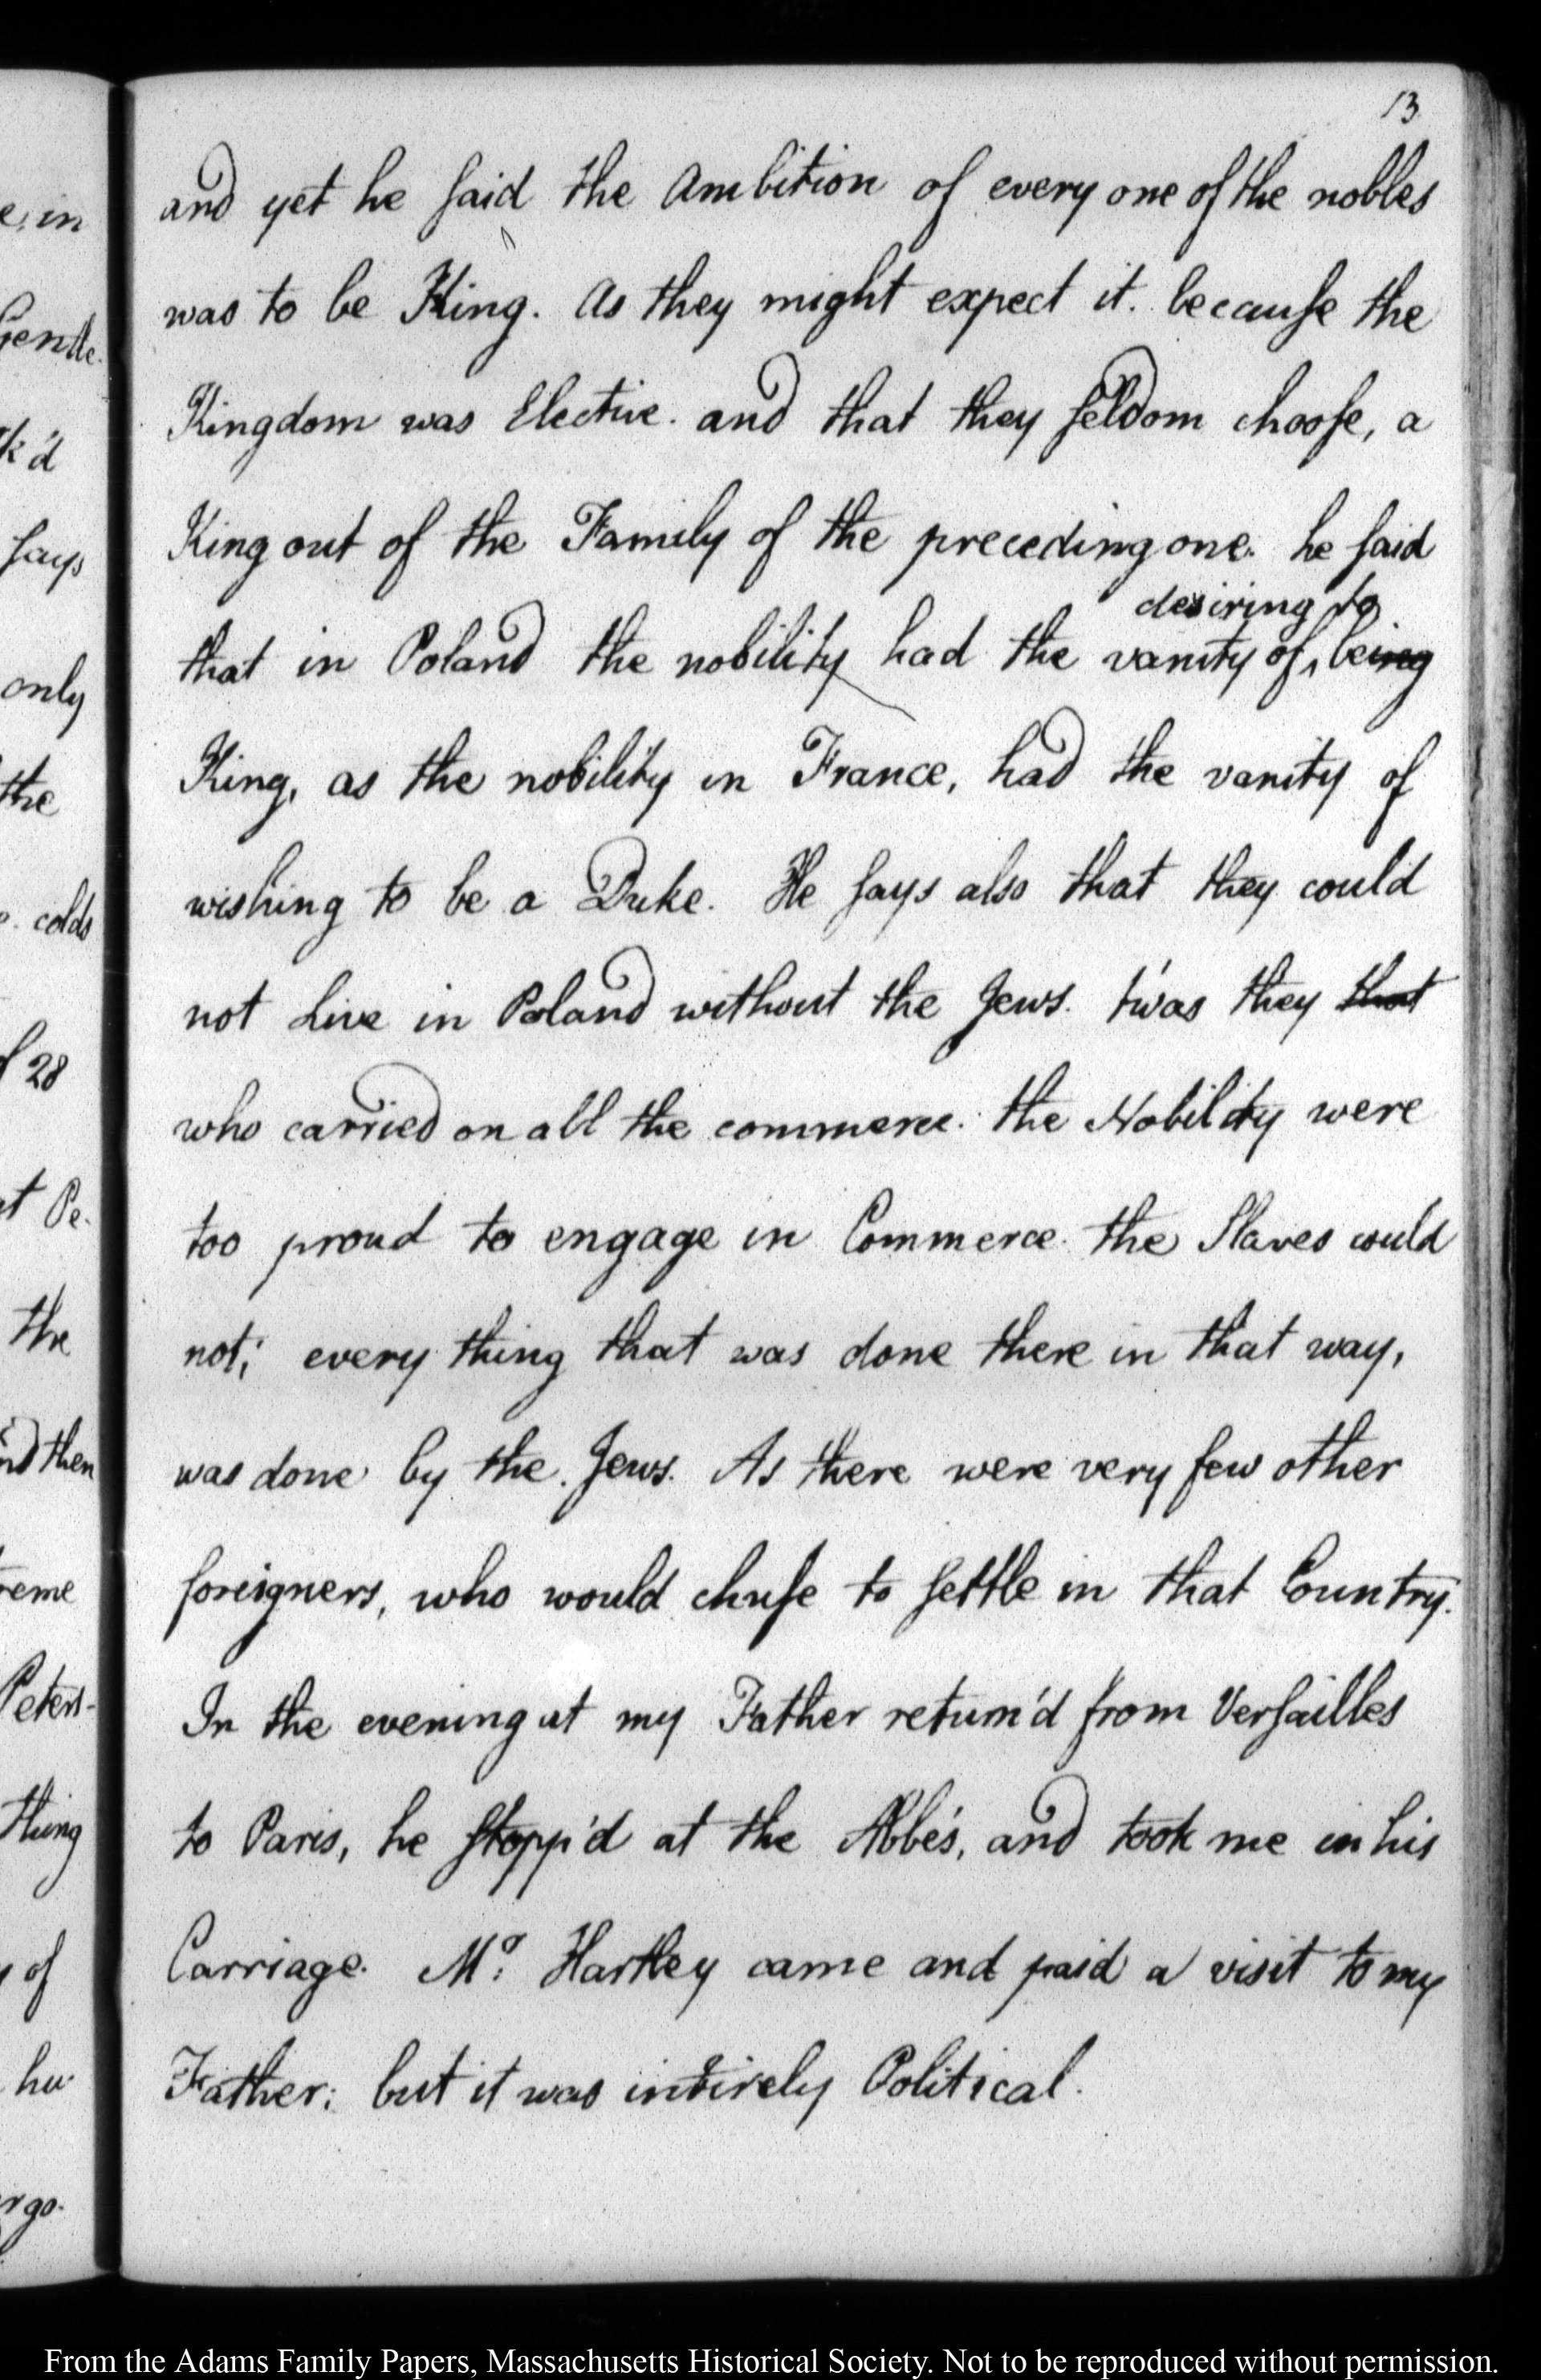 13
and yet he said the Ambition of every one of the nobles
was to be King. As they might expect it. because the
Kingdom was Elective. and that they seldom choose, a
King out of the Family of the preceding one. he said
desiring to
that in Poland the nobility had the vanity of, being
King, as the nobility in France, had the vanity of
wishing to be a Duke. He says also that they could
not Live in Poland without the Jews. t'was they that
who carried on all the commerce. the Nobility were
too proud to engage in Commerce. the Slaves could
not; every thing that was done there in that way,
was done by the Jews. As there were very few other
foreigners, who would chuse to settle in that Country.
In the evening at my Father return'd from Versailles
to Paris, he stopp'd at the Abbés, and took me in his
Carriage. Mr. Hartley came and paid a visit to my
Father; but it was intirely Political.
e, in
Gentle.
k'd
says
only
the
colds
28
t Pe.
the
nd then
reme
Peters-
thing
of
hu
rgo.
From the Adams Family Papers, Massachusetts Historical Society. Not to be reproduced without permission.